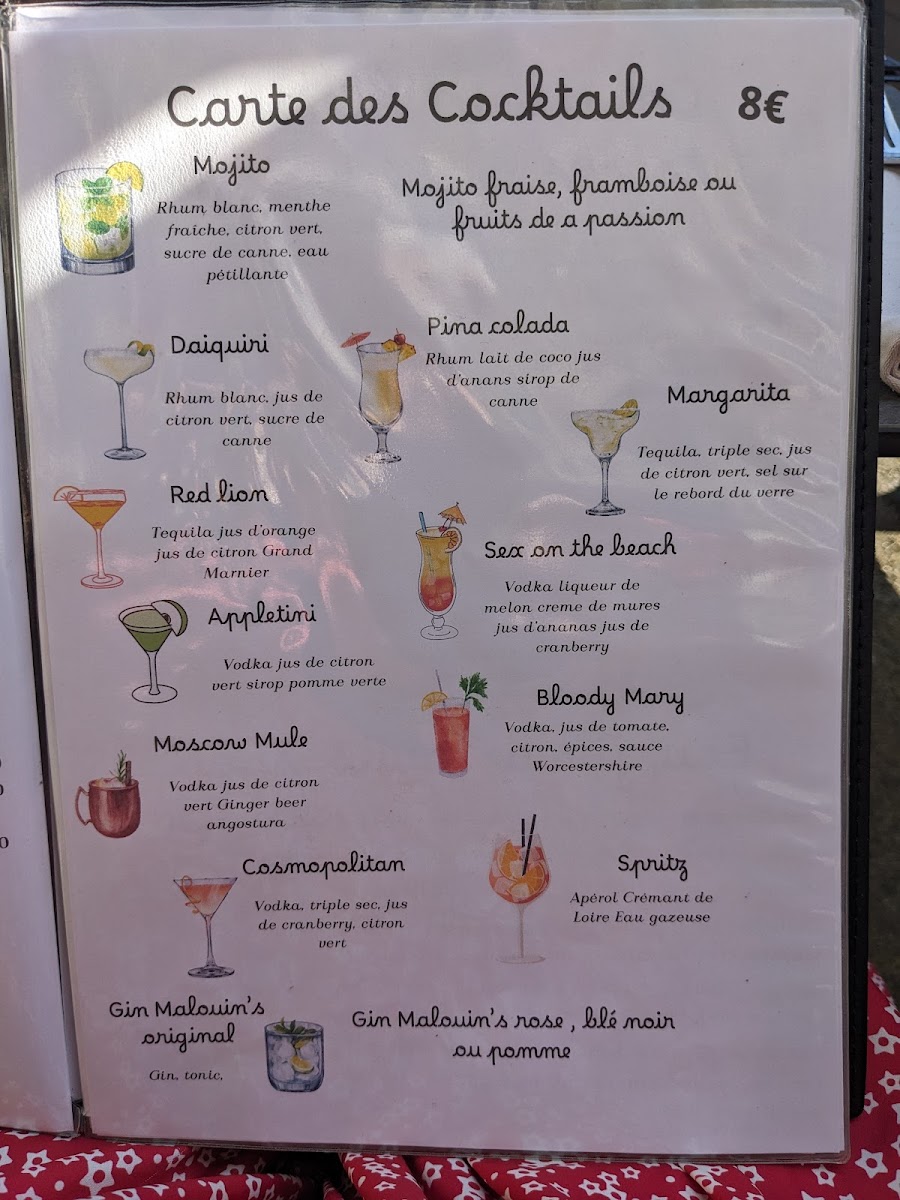 Carte des Cocktails 8€
Mojito
Rhum blanc, menthe
fraiche, citron vert,
sucre de canne, eau
pétillante
Mojito fraise, framboise ou
fruits de a passion
Daiquiri
Rhum blanc, jus de
citron vert, sucre de
canne
Pina colada
Rhum lait de coco jus
d'anans sirop de
canne
Margarita
Tequila, triple sec, jus
de citron vert, sel sur
le rebord du verre
Red lion
Tequila jus d'orange
jus de citron Grand
Marnier
Sex on the beach
Vodka liqueur de
melon creme de mures
jus d'ananas jus de
cranberry
Appletini
Vodka jus de citron
vert sirop pomme verte
Bloody Mary
Vodka, jus de tomate,
citron, épices, sauce
Worcestershire
Moscow Mule
Vodka jus de citron
vert Ginger beer
angostura
Cosmopolitan
Vodka, triple sec, jus
de cranberry, citron
vert
Spritz
Apérol Crémant de
Loire Eau gazeuse
Gin Malouin's
original
Gin, tonic,
Gin Malouin's rose , blé noir
ou pomme